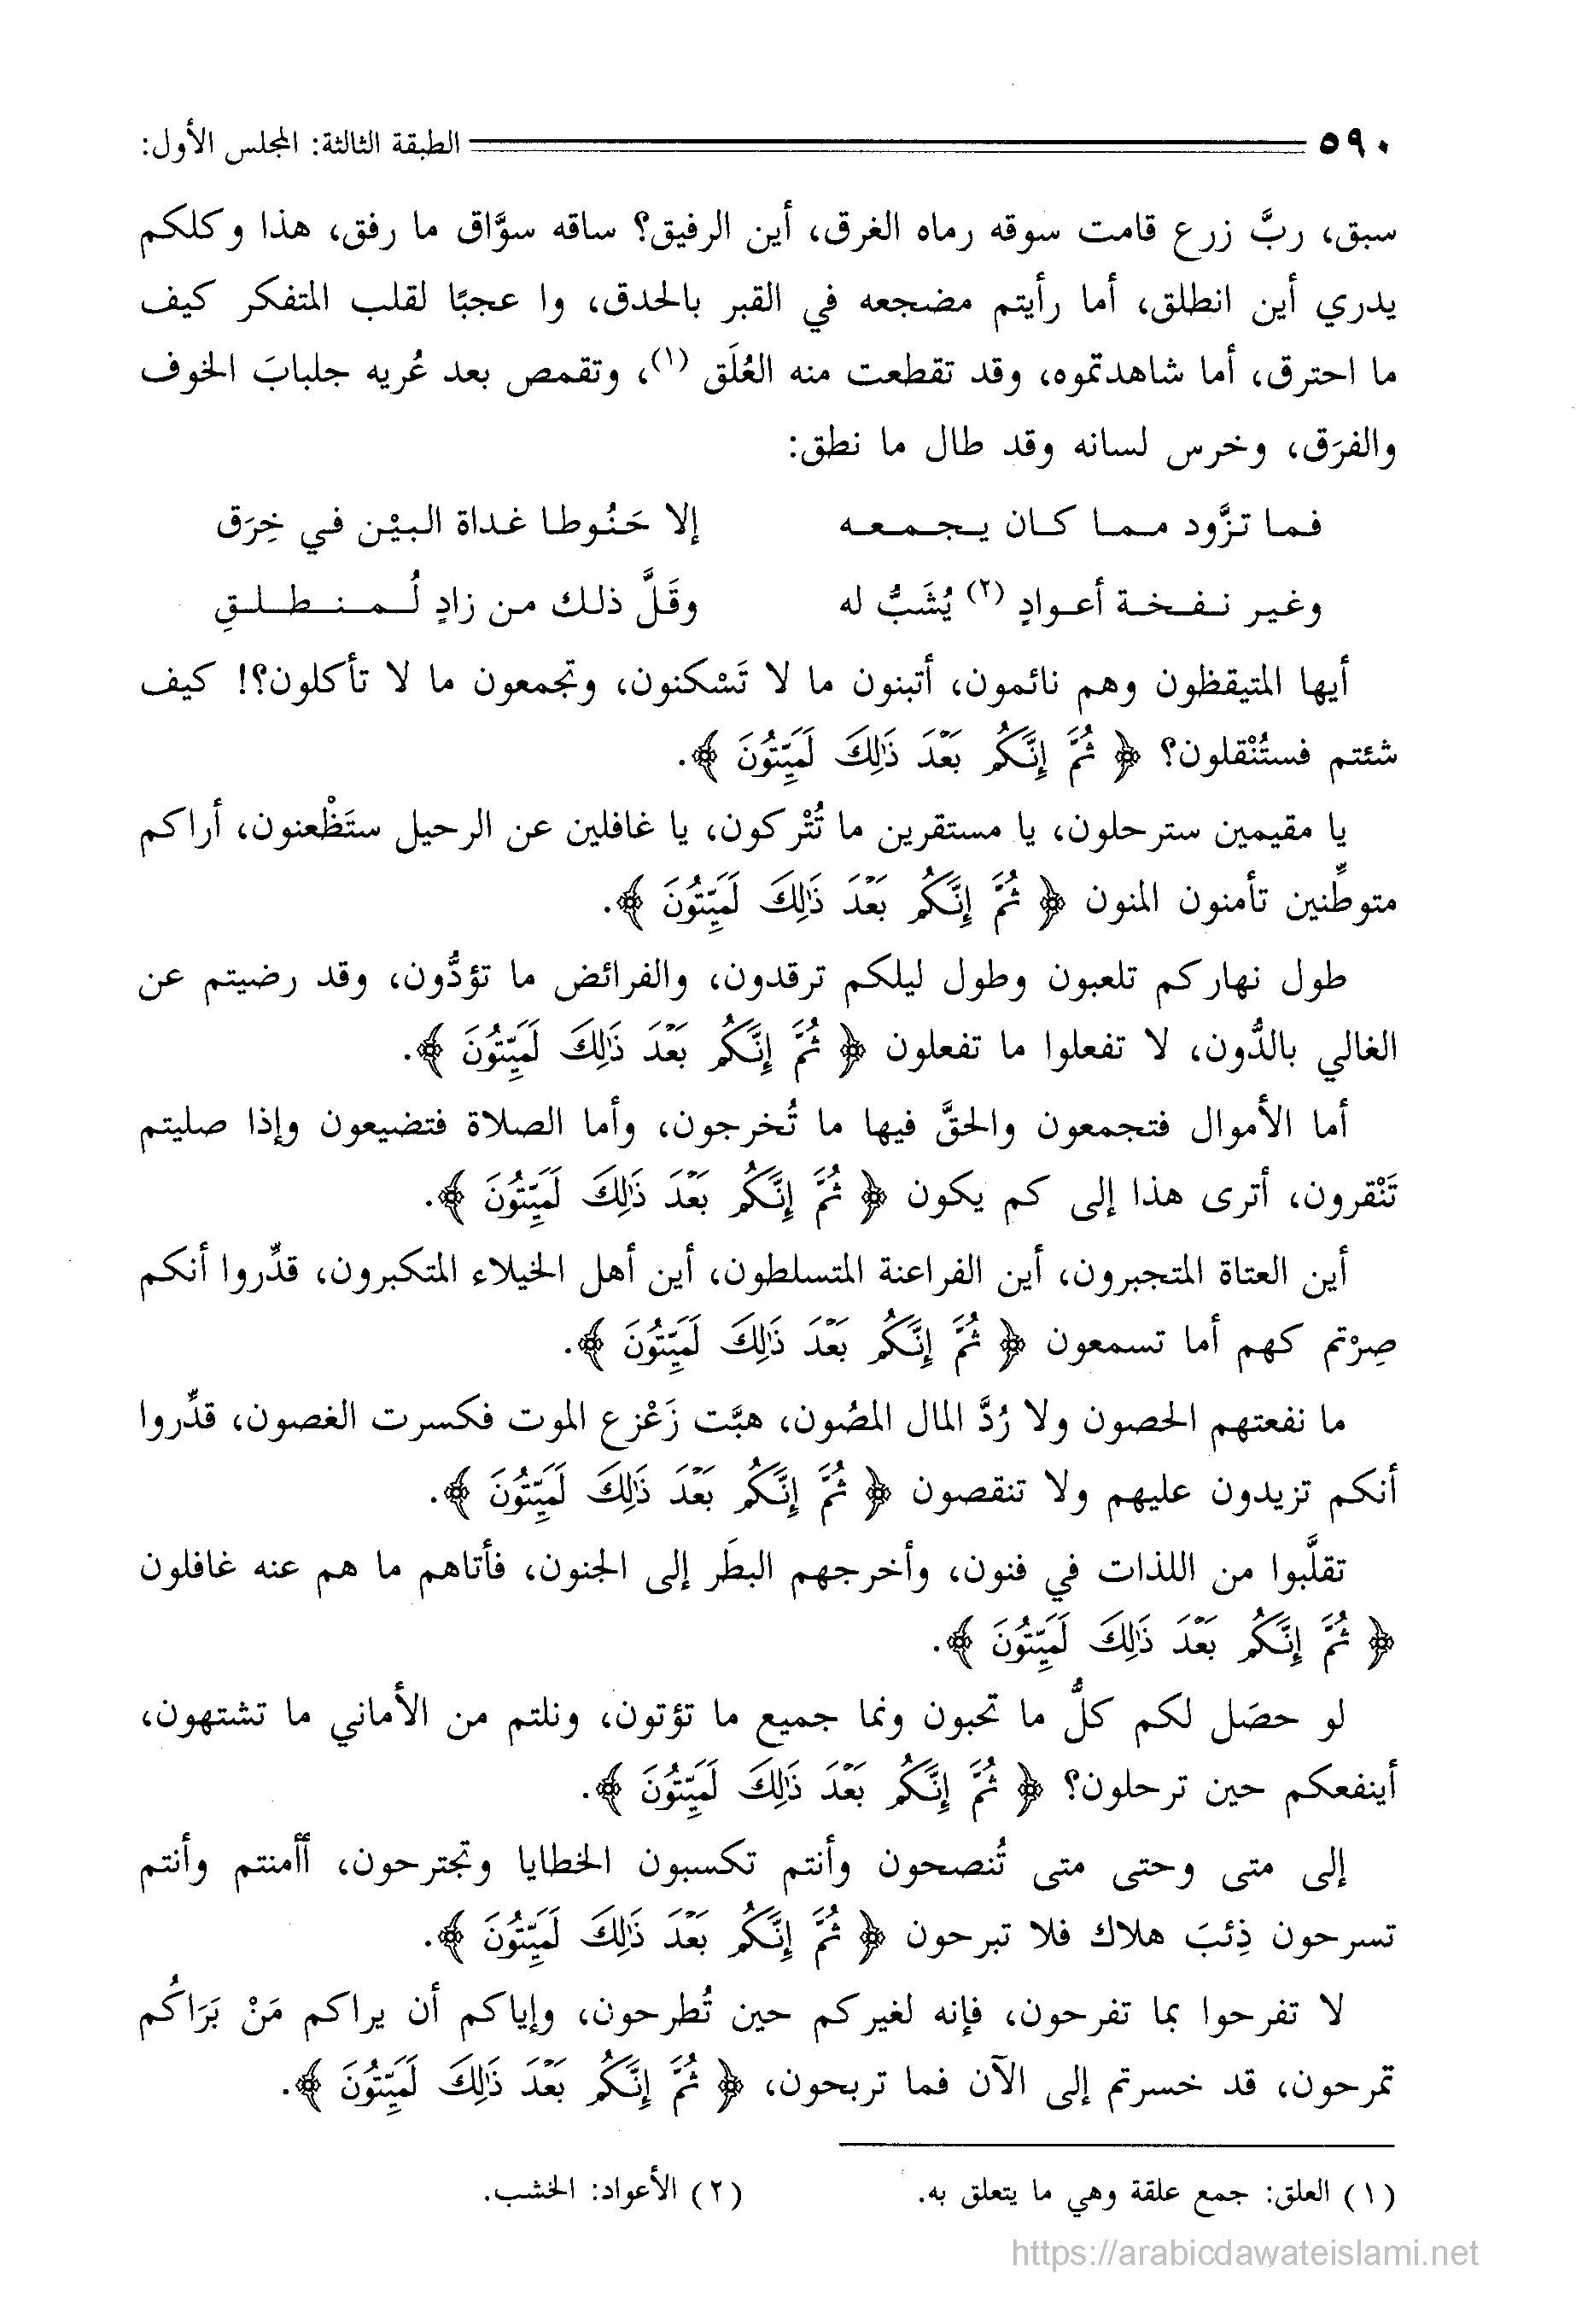 ٥٩٠ الطبقة الثالثة: المجلس الأول:
سبق، ربَّ زرع قامت سوقه رماه الغرق، أين الرفيق؟ ساقه سوَّاق ما رفق، هذا وكلكم
يدري أين انطلق، أما رأيتم مضجعه في القبر بالحدق، وا عجبًا لقلب المتفكر كيف
ما احترق، أما شاهدتموه، وقد تقطعت منه العُلَق (١)، وتقمص بعد عُريه جلبابَ الخوف
والفرَق، وخرس لسانه وقد طال ما نطق:
فما تزَّود مما كان يجمعه إلا حَنُوطا غداة البيْن في خِرَق
وغير نفخة أعوادٍ (٢) يُشَبُّ له وقَلَّ ذلك من زادٍ لُمنطلقِ
أيها المتيقظون وهم نائمون، أتبنون ما لا تَسْكنون، وتجمعون ما لا تأكلون؟! كيف
شئتم فستُنْقلون؟ ﴿ ثُمَّ إِنَّكُم بَعْدَ ذَٰلِكَ لَمَيِّتُونَ ﴾.
يا مقيمين سترحلون، يا مستقرين ما تُتْركون، يا غافلين عن الرحيل ستَظْعنون، أراكم
متوطِّنين تأمنون المنون ﴿ ثُمَّ إِنَّكُم بَعْدَ ذَٰلِكَ لَمَيِّتُونَ ﴾.
طول نهاركم تلعبون وطول ليلكم ترقدون، والفرائض ما تؤدُّون، وقد رضيتم عن
الغالي بالدُّون، لا تفعلوا ما تفعلون ﴿ ثُمَّ إِنَّكُم بَعْدَ ذَٰلِكَ لَمَيِّتُونَ ﴾.
أما الأموال فتجمعون والحقَّ فيها ما تُخرجون، وأما الصلاة فتضيعون وإذا صليتم
تَنْقرون، أترى هذا إلى كم يكون ﴿ ثُمَّ إِنَّكُم بَعْدَ ذَٰلِكَ لَمَيِّتُونَ ﴾.
أين العتاة المتجبرون، أين الفراعنة المتسلطون، أين أهل الخيلاء المتكبرون، قدِّروا أنكم
صِرْتم كهم أما تسمعون ﴿ ثُمَّ إِنَّكُم بَعْدَ ذَٰلِكَ لَمَيِّتُونَ ﴾.
ما نفعتهم الحصون ولا رُدَّ المال المصُون، هبَّت زَعْزع الموت فكسرت الغصون، قدِّروا
أنكم تزيدون عليهم ولا تنقصون ﴿ ثُمَّ إِنَّكُم بَعْدَ ذَٰلِكَ لَمَيِّتُونَ ﴾.
تقلَّبوا من اللذات في فنون، وأخرجهم البطَر إلى الجنون، فأتاهم ما هم عنه غافلون
﴿ ثُمَّ إِنَّكُم بَعْدَ ذَٰلِكَ لَمَيِّتُونَ ﴾.
لو حصَل لكم كلُّ ما تحبون ونما جميع ما تؤتون، ونلتم من الأماني ما تشتهون،
أينفعكم حين ترحلون؟ ﴿ ثُمَّ إِنَّكُم بَعْدَ ذَٰلِكَ لَمَيِّتُونَ ﴾.
إلى متى وحتى متى تُنصحون وأنتم تكسبون الخطايا وتجترحون، أأمنتم وأنتم
تسرحون ذِئبَ هلاك فلا تبرحون ﴿ ثُمَّ إِنَّكُم بَعْدَ ذَٰلِكَ لَمَيِّتُونَ ﴾.
لا تفرحوا بما تفرحون، فإنه لغيركم حين تُطرحون، وإياكم أن يراكم مَنْ بَرَاكُم
تمرحون، قد خسرتم إلى الآن فما تربحون، ﴿ ثُمَّ إِنَّكُم بَعْدَ ذَٰلِكَ لَمَيِّتُونَ ﴾.
(١) العلق: جمع علقة وهي ما يتعلق به. (٢) الأعواد: الخشب.
https://arabicdawateislami.net